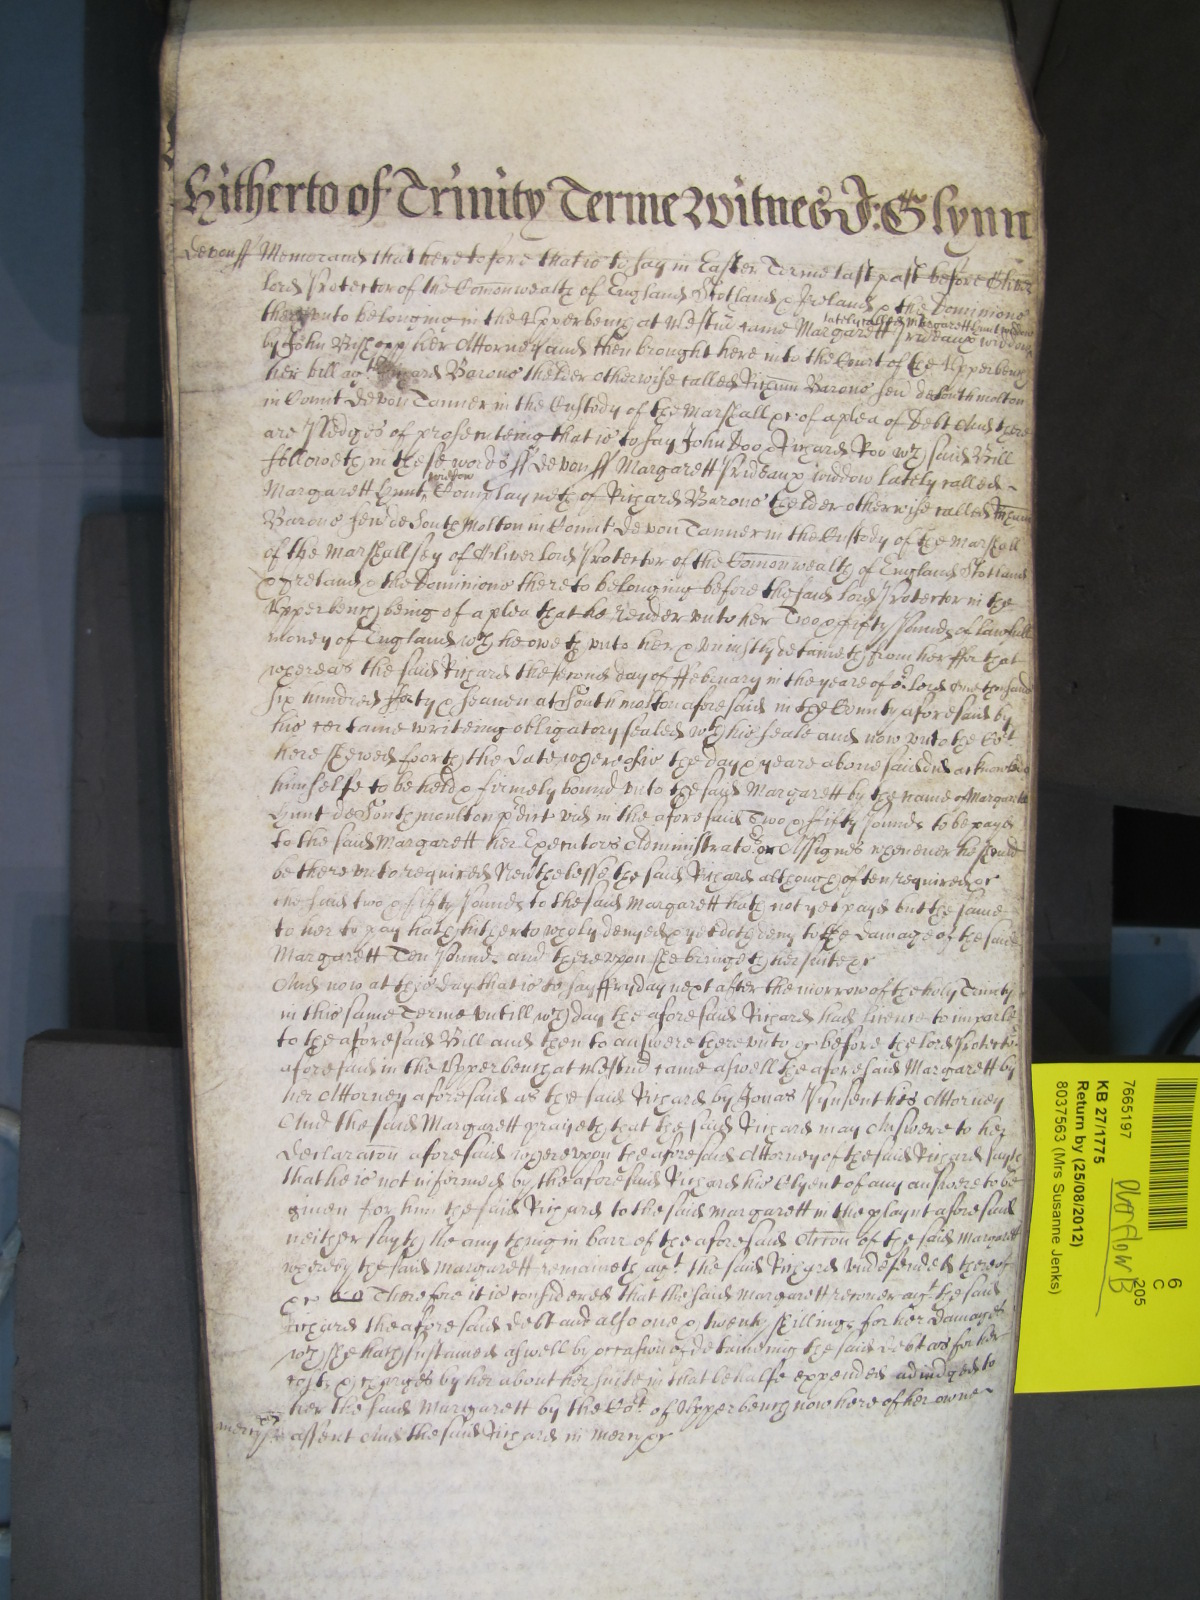 Hitherto of Trinity Terme Witnes J: Glynn
Devon ss Memorand that heretofore that is to say in Easter Terme last past before Oliver
lord Protector of the Comonwealth of England Scotland & Ireland & the Dominions
lately called Margarett Hunt widdow
thereunto belonging in the Upperbench at Westm came Margarett Prideaux widdow
by John Bishopp her Attorney and then brought here into the Court of the Upperbench
her bill agt Richard Barons thelder otherwise called Richum Barons sen de Southmolton
in Comit Devon Tanner in the Custody of the Marshall &c of a plea of Debt And there
are Pledges of prosecuteing that is to say John Doo & Richard Roo wch said Bill
followeth in these words ss Devon ss Margarett Prideaux widdow lately called
widdow
Margarett Hunt Complayneth of Richard Barons thelder otherwise called Richum
Barons sen de South Molton in Comit Devon Tanner in the Custody of the Marshall
of the Marshallsey of Oliver Lord Protector of the Comonwealth of England Scotland
& Ireland & the Dominions thereto belonging before the said lord Protector in the
Upperbench being of a plea that he render unto her Two & fifty Pounds of lawfull
money of England wch he oweth unto her & uniustly detaineth from her ffor that
whereas the said Richard the second day of ffebruary in the yeare of or Lord One thousand
six hundred forty & seaven at South molton aforesaid in the County aforesaid by
his certaine writeing obligatory sealed wth his seale and now unto the Cort
here shewed foorth the date whereof is the day & yeare above said did acknowledge
himselfe to be held & firmely bound unto the said Margarett by the name of Margarett
Hunt de South moulton pdict vid in the aforesaid Two & fifty Pounds to be payd
to the said Margarett her Executors Administrators or Assignes whenever he should
be thereunto required Neverthelesse the said Richard although often required &c
the said two & fifty Pounds to the said Margarett hath not yet payd but the same
to her to pay hath hitherto wholy denyed & yet doth deny to the damage of the said
Margarett Ten Pounds and thereupon she bringeth her suite &c
And now at this day that is to say ffryday next after the morrow of the holy Trinity
in this same Terme untill wch day the aforesaid Richard had licence to imparle
to the aforesaid Bill and then to answere thereunto &c before the lord Protector
aforesaid in the Upperbench at Westm came aswell the aforesaid Margarett by
her Attorney aforesaid as the said Richard by Jonas Pynsent his Attorney
And the said Margarett prayeth that the said Richard may Answere to her
declaracon aforesaid whereupon the aforesaid Attorney of the said Richard sayth
that he is not informed by the aforesaid Richard his Clyent of any answere to be
given for him the said Richard to the said Margarett in the playnt aforesaid
neither sayth he any thing in barr of the aforesaid Accon of the said Margarett
whereby the said Margarett remaineth agt the said Richard undefended thereof
&c Therefore it is considered that the said Margarett recover agt the said
Richard the aforesaid debt and also one & twenty shillings for her Damages
wch she hath sustained aswell by occasion of detaineing the said debt as for her
costs & charges by her about her suite in that behalfe expended adiudged to
her the said Margarett by the Cort of Upperbench now here of her owne
assent And the said Richard in mercy &c
mercy
7665197
KB 27/1775
Return by (25/08/2012)
8037563 (Mrs Susanne Jenks)
6
C
205